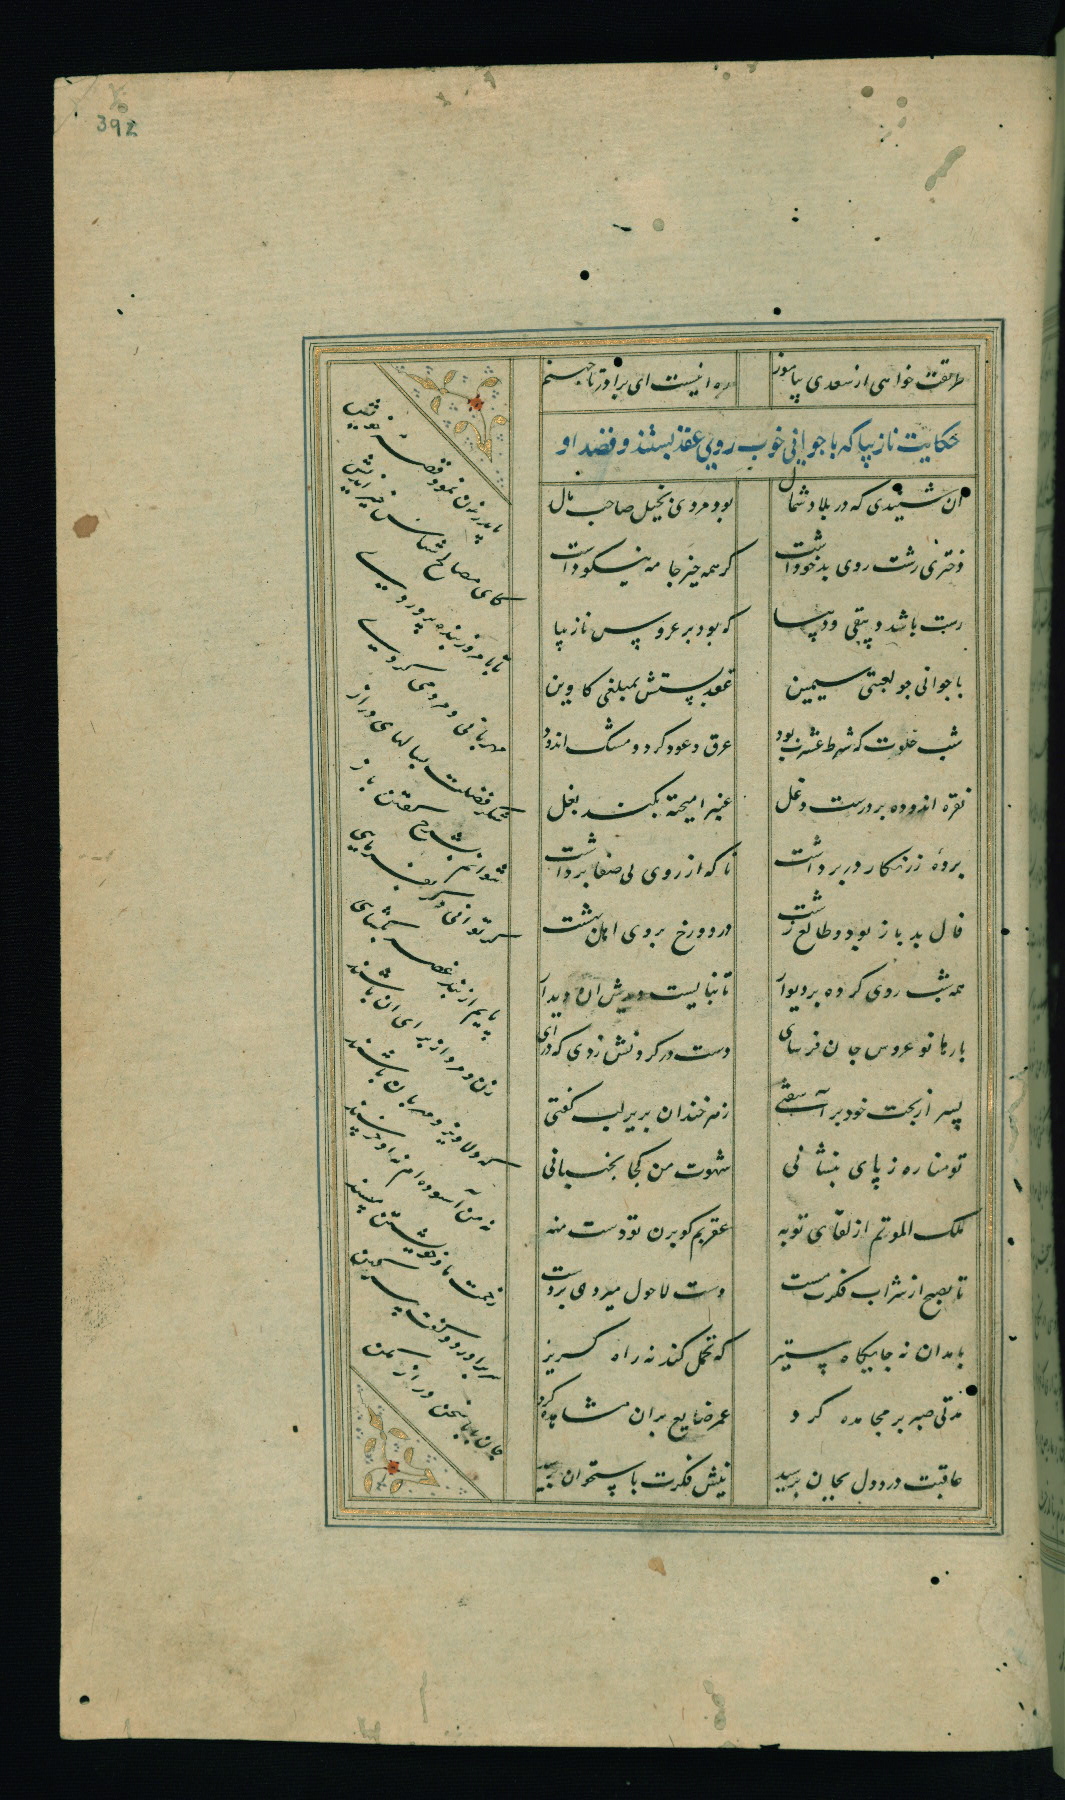 392
طریقت خواهی از سعدی بیاموز ره اینست ای برادر تا جهنم
حکایت نازیبا که با جوانی خوب روی عقد بستند و قصد او
آن شنیدی که در بلاد شمال بود مردی بخیل صاحب مال
دختری زشت روی بدخو داشت کز همه چیز جامه نیکو داشت
زشت باشد دبیقی و دیبا که بود بر عروس نازیبا
با جوانی چو لعبتی سیمین عقد بستش بمبلغی کاوین
شب خلوت که شرط عشرت بود عرق و عود کرد و مشک اندود
نقره اندوده بر درست دغل عنبر امیخته بکند بغل
پرده زرنکار در بر داشت تا که از روی بی صفا برداشت
فال بد باز بود و طالع زشت در دوزخ بروی اهل بهشت
همه شب روی کرده بر دیوار تا نبایست دیدنش ان دیدار
بارها نو عروس جان فرسای دست در کردنش زدی که درای
پسر از بخت خود بر آشفتی زهر خندان بزیر لب کفتی
تو مناره ز پای بنشانی شهوت من کجا بجنبانی
ملک الموتم از لقای تو به عقربم کو بزن تو دست منه
تا بصبح از شراب فکرت مست دست لاحول میزدی بر دست
بامدادن نه جایکاه ستیز که تحمل کند نه راه کریز
مدتی صبر بر مجاهده کرد عمر ضایع بران مشاهده کرد
عاقبت درد دل بجان برسید نیش فکرت باستخوان برسید
با پدر زن نمود قصه خویش
کای مصالح شناس خیر اندیش
تا بامروز بنده پروردی
مهربانی و مردمی کردی
شکر فضلت بسالهای دراز
نتوانم بشرح کفتن باز
کر توانی دکر بفرمایی
پایم از بند غصه بکشای
زن و مرد از برای ان باشند
که دلاویز و مهربان باشند
نه من آسوده‌ام نه او خرسند
زحمت ما و خویشتن مپسند
سر براورد و کفت سیمین
چان بابا سخن دراز مکن